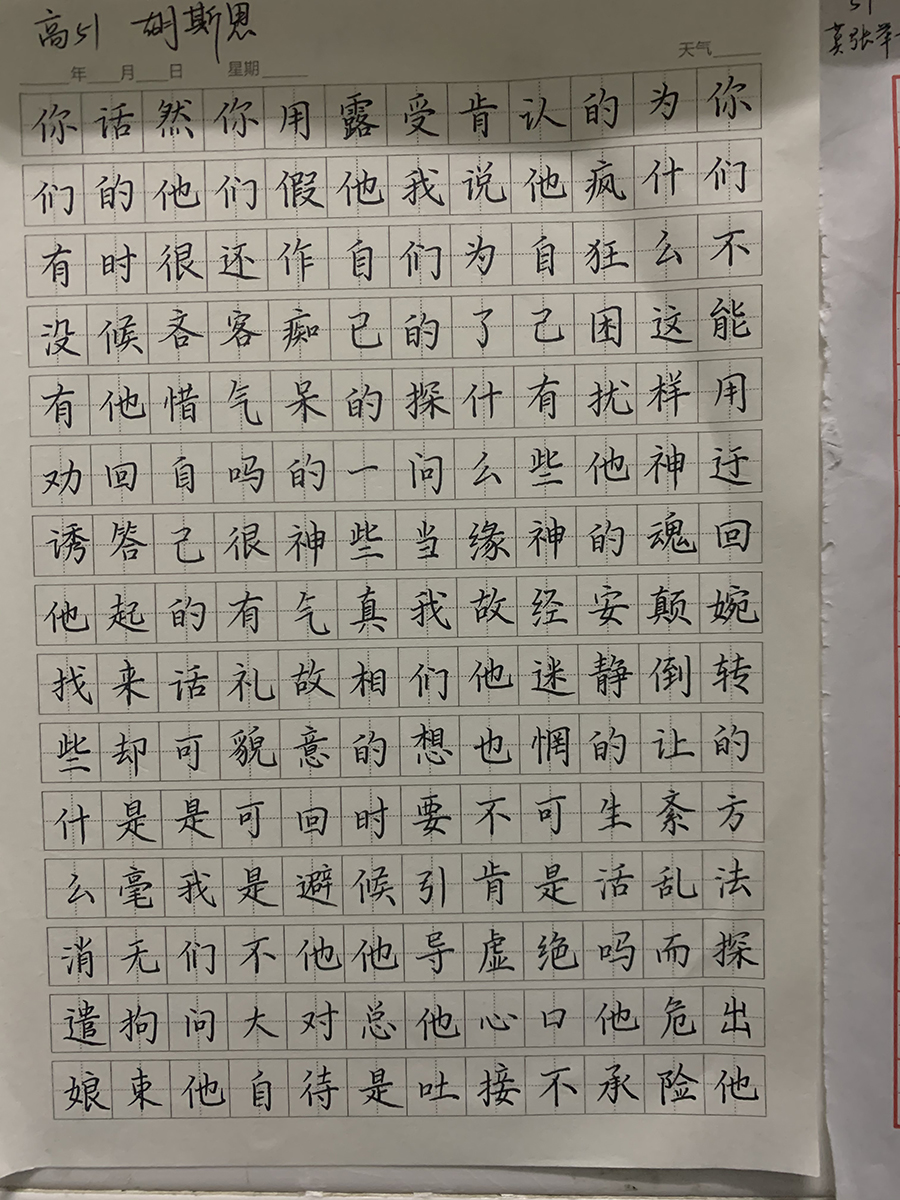 高51 胡斯恩
年 月 日 星期 天气
你们不能用迂回婉转的方法探出他
为什么这样神魂颠倒让紊乱而危险
的疯狂困扰他的安静的生活吗他承
认他自己有些神经迷惘可是绝口不
肯说为了什么缘故他也不肯虚心接
受我们的探问当我们想要引导他吐
露他自己的一些真相的时候他总是
用假作痴呆的神气故意回避他对待
你们还客气吗很有礼貌可是不大自
然他很吝惜自己的话可是我们问他
话的时候他回答起来却是毫无拘束
你们有没有劝诱他找些什么消遣娘